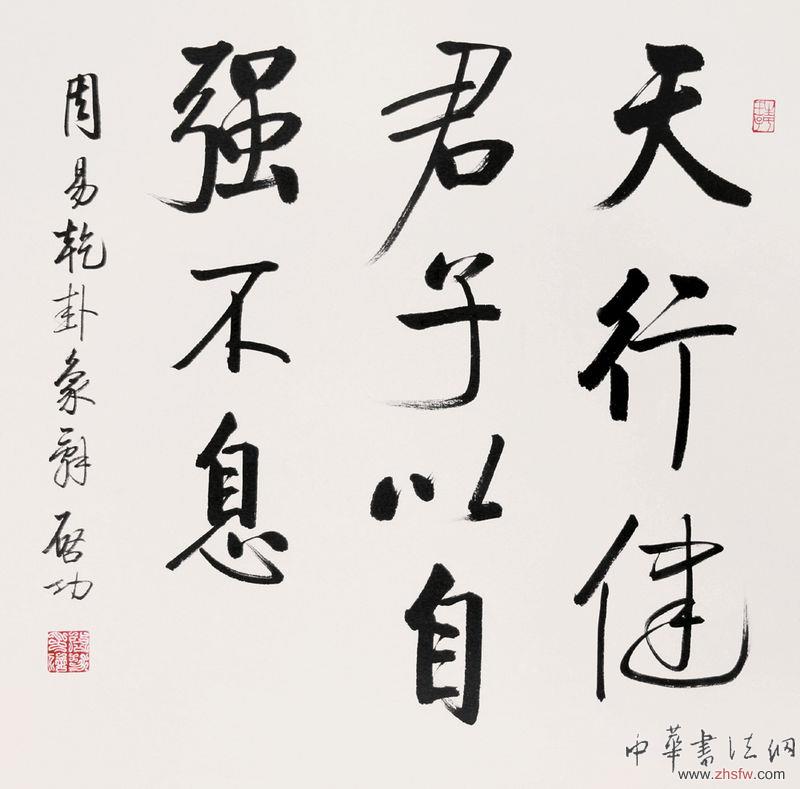 天行健
君子以自
强不息
周易乾卦象辞 启功
中华书法网
www.zhsfw.com